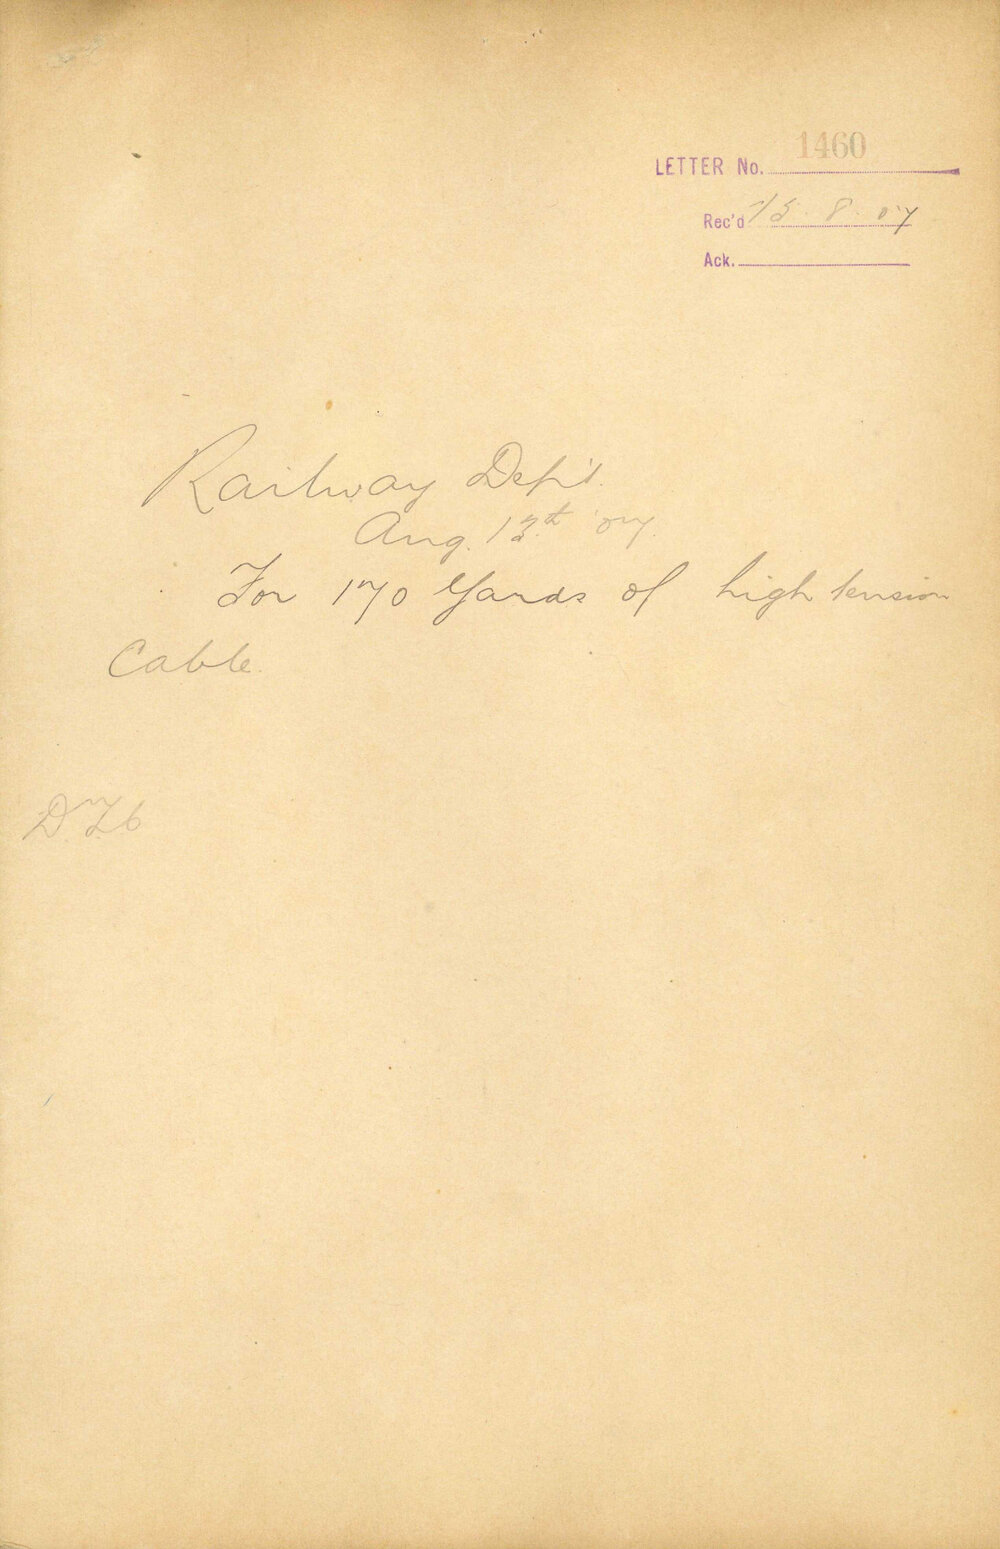 LETTER No. 1460
Rec'd 15.8.07
Ack.
Railway Dep't.
Aug. 13th '07.
For 170 Yards of high tension
Cable.